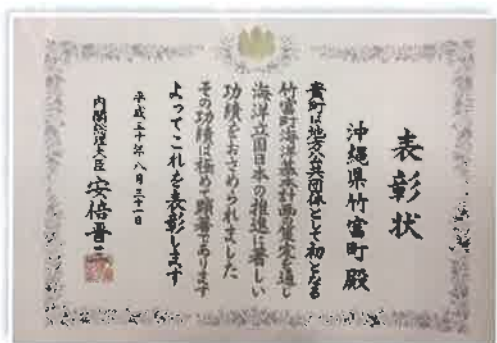 表彰状
沖縄県竹富町殿
貴町は地方公共団体として初となる
竹富町海洋基本計画の策定を通し
海洋立国日本の推進に著しい
功績をおさめられました
その功績は極めて顕著であります
よってこれを表彰します
平成三十年八月三十一日
内閣総理大臣 安倍晋三